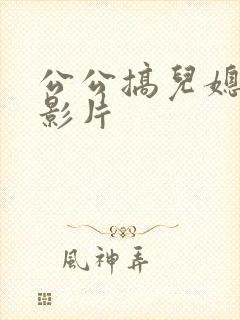 公公搞兒媳
影片
風神弄